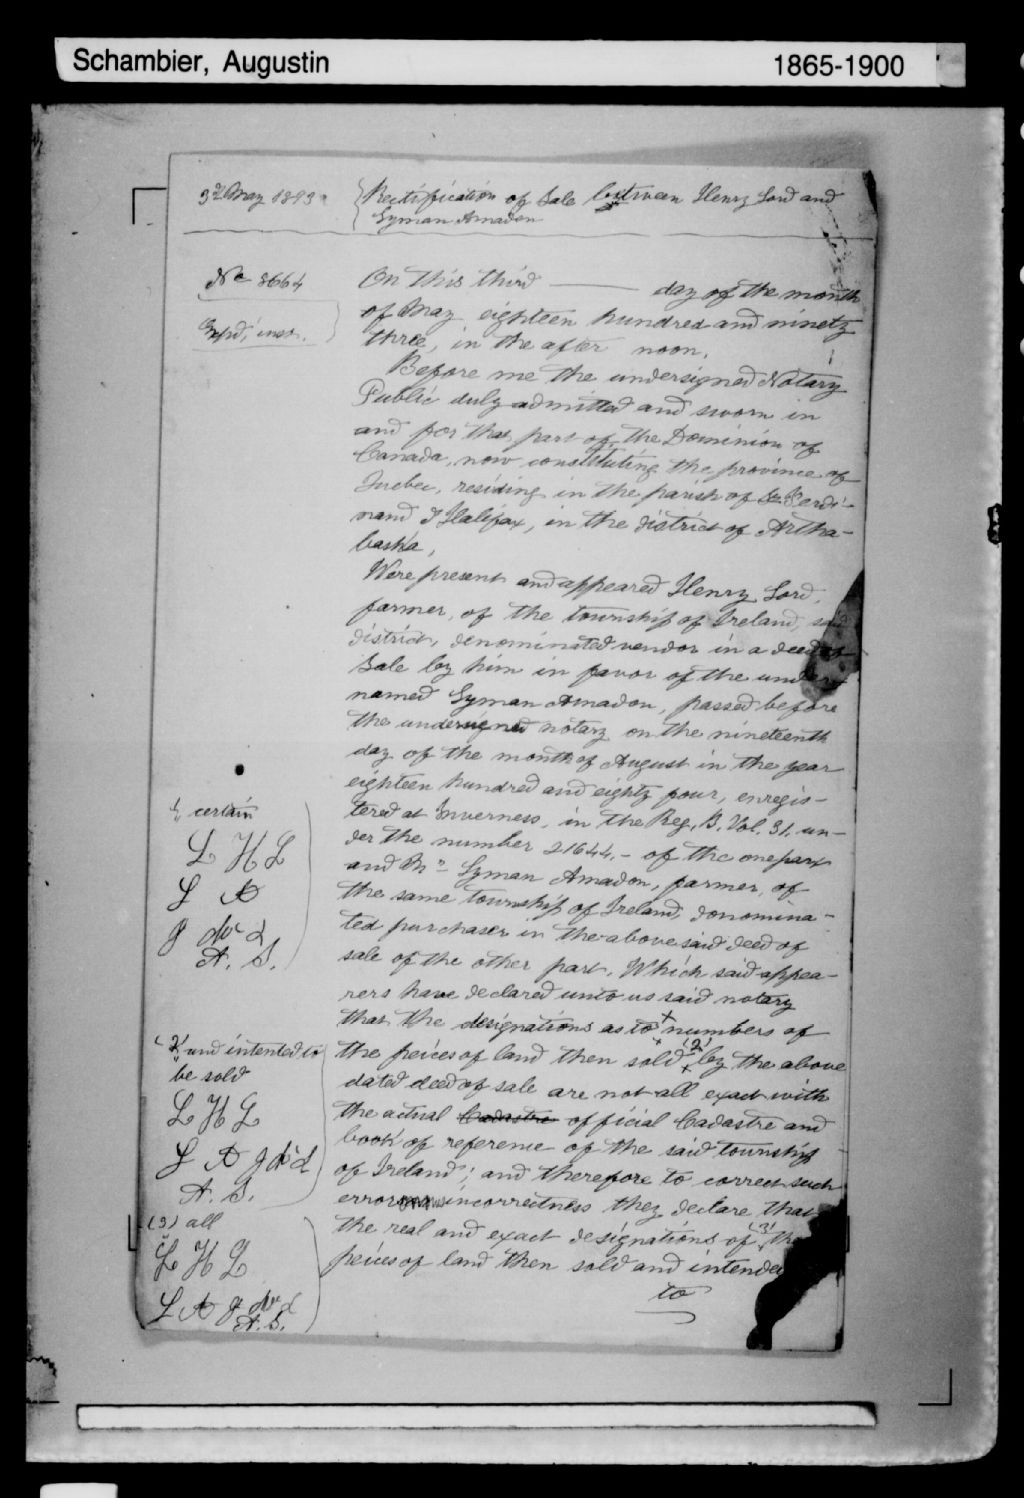 Schambier, Augustin 1865-1900
3d May 1893
Rectification of Sale between Henry Lord and
Lyman Amadon
No 8664
On this third day of the month
of May eighteen hundred and ninety
three, in the after noon.
Before me the undersigned Notary
Public duly admitted and sworn in
and for that part of the Dominion of
Canada, now constituting the province of
Quebec, residing in the parish of St Ferdi-
nand d'Halifax, in the district of Artha-
baska,
Were present and appeared Henry Lord,
farmer, of the township of Ireland, said
district, denominated vendor in a deed of
Sale by him in favor of the under
named Lyman Amadon, passed before
the undersigned notary on the nineteenth
day of the month of August in the year
eighteen hundred and eighty four, enregis-
tered at Inverness, in the Reg. B. Vol. 31. un-
der the number 21644, - of the one part
and Mr Lyman Amadon, farmer, of
the same township of Ireland, donomina-
ted purchaser in the above said deed of
sale of the other part. Which said appea-
rers have declared unto us said notary
that the designations as to + numbers of
the peices of land then sold (2) by the above
dated deed of sale are not all exact with
the actual Cadastre official Cadastre and
book of reference of the said township
of Ireland; and therefore to correct such
error incorrectness they declare that
the real and exact designations of (3) the
peices of land then sold and intended
to
certain
L H L
L A
A. S.
(2) and intented to
be sold
L H L
L A
A. S.
(3) all
L H L
L A
A. S.